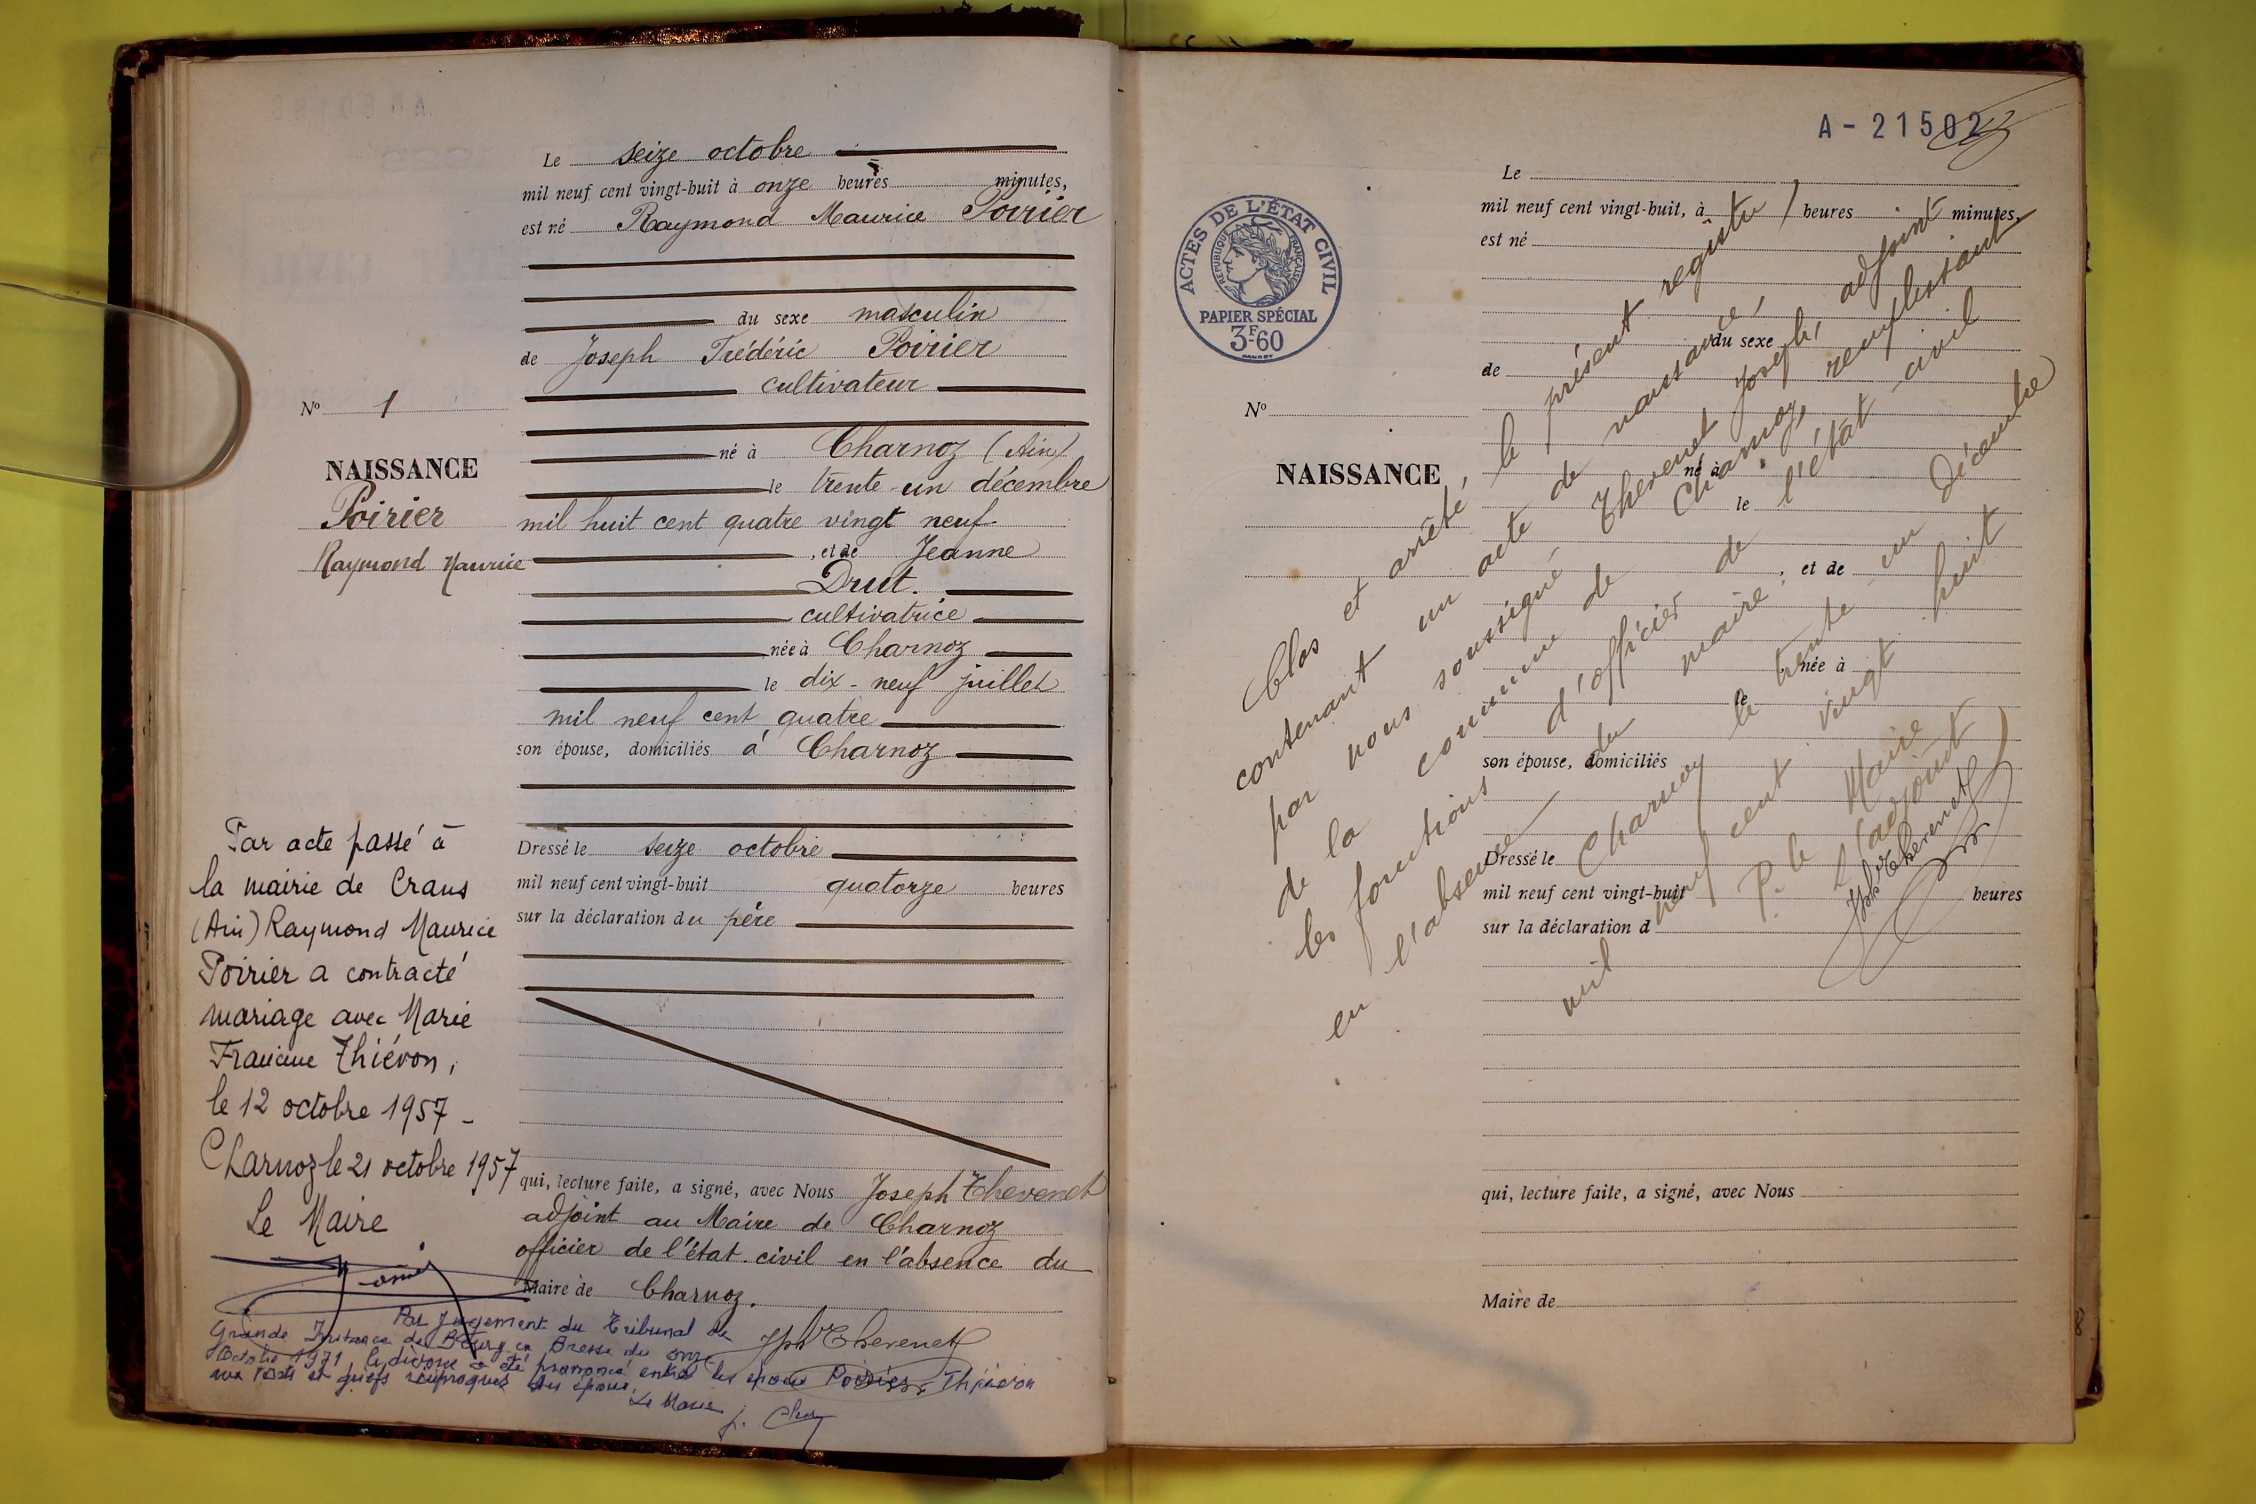 Le seize octobre
mil neuf cent vingt-huit à onze heures minutes,
est né Raymond Maurice Poirier
du sexe masculin
de Joseph Frédéric Poirier
cultivateur
né à Charnoz (Ain)
le trente-un décembre
mil huit cent quatre vingt neuf
, et de Jeanne
Drut.
cultivatrice
née à Charnoz
le dix-neuf juillet
mil neuf cent quatre
son épouse, domiciliés à Charnoz
Dressé le seize octobre
mil neuf cent vingt-huit quatorze heures
sur la déclaration du père
qui, lecture faite, a signé, avec Nous Joseph Thevenet
adjoint au Maire de Charnoz
officier de l'état-civil en l'absence du
Maire de Charnoz.
Jph Thevenet
Poirier
No 1
NAISSANCE
Poirier
Raymond Maurice
Par acte passé à
la mairie de Crans
(Ain) Raymond Maurice
Poirier a contracté
mariage avec Marie
Francine Thiévon,
le 12 octobre 1957 -
Charnoz le 21 octobre 1957
Le Maire
Par jugement du Tribunal de
Grande Instance de Bourg en Bresse du onze
Octobre 1971 le divorce a été prononcé entre les époux Poirier Thiévon
aux torts et griefs réciproques des époux.
Le Maire
A-21502
ACTES DE L'ÉTAT CIVIL
RÉPUBLIQUE FRANÇAISE
PAPIER SPÉCIAL
3F60
No
NAISSANCE
Le
mil neuf cent vingt-huit, à heures minutes,
est né
du sexe
de
né à
le
, et de
née à
le
son épouse, domiciliés
Dressé le
mil neuf cent vingt-huit heures
sur la déclaration d
qui, lecture faite, a signé, avec Nous
Maire de
Clos et arrêté, le présent registre
contenant un acte de naissance,
par nous soussigné Thevenet Joseph, adjoint
de la commune de Charnoz, remplissant
les fonctions d'officier de l'état-civil
en l'absence du maire.
Charnoz le trente-un Décembre
mil neuf cent vingt huit
P. le Maire
L'adjoint
Jph Thevenet